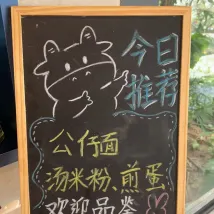 今日
推荐
公仔面
汤米粉、煎蛋
欢迎品鉴